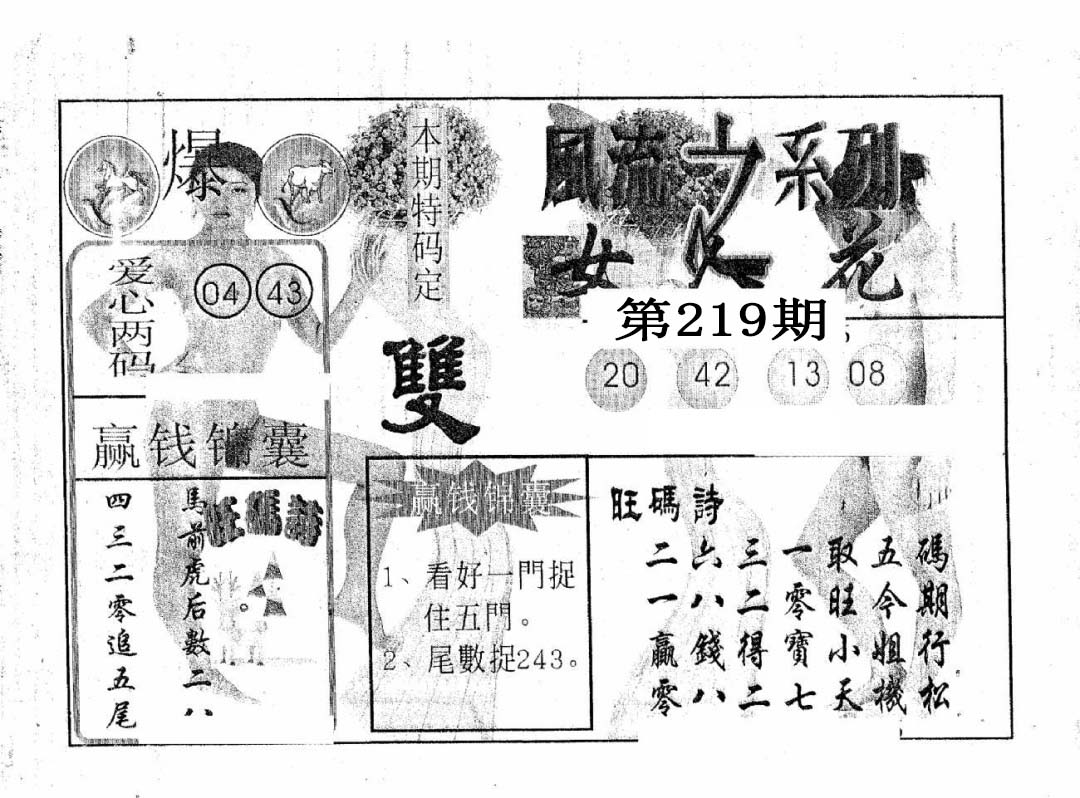 風流之系列
女人花
第219期
20 42 13 08
爆
本期特码定
雙
爱心两码
04 43
赢钱锦囊
旺碼詩
馬前虎后數二八
四三二零追五尾
赢钱锦囊
1、看好一門捉
住五門。
2、尾數捉243。
旺碼詩
二六三一取五碼
一八二零旺今期
贏錢得寶小姐行
零八二七天機松